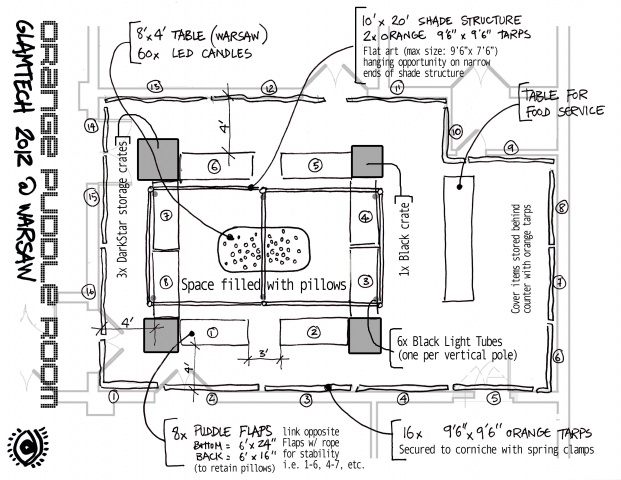 ORANGE PUDDLE ROOM
GLAMTECH 2012 @ WARSAW
8'x4' TABLE (WARSAW)
60x LED CANDLES
10' x 20' SHADE STRUCTURE
2x ORANGE 9'6" x 9'6" TARPS
Flat art (max size: 9'6"x 7'6")
hanging opportunity on narrow
ends of shade structure
TABLE FOR
FOOD SERVICE
13
12
11
14
10
9
4'
15
3x DarkStar storage crates
6
5
1x Black crate
8
7
4
Cover items stored behind
counter with orange tarps
8
3
7
Space filled with pillows
16
4'
1
2
6x Black Light Tubes
(one per vertical pole)
6
3'
4'
1
2
3
4
5
8x PUDDLE FLAPS
BOTTOM = 6' x 24"
BACK = 6' x 16"
(to retain pillows)
link opposite
Flaps w/ rope
for stability
i.e. 1-6, 4-7, etc.
16x 9'6" x 9'6" ORANGE TARPS
Secured to corniche with spring clamps